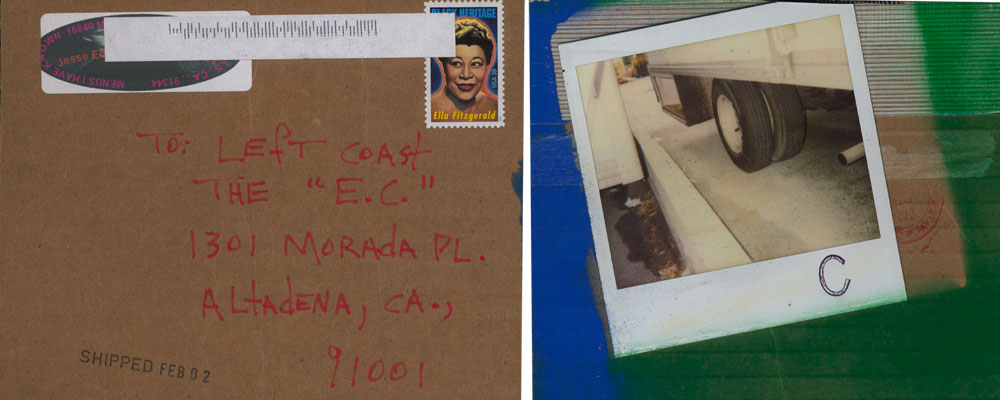 MENUS I HAVE KNOWN 18640
Jesse
CA 91344
BLACK HERITAGE
USA 39
Ella Fitzgerald
TO: LEFT COAST
THE "E.C."
1301 MORADA PL.
ALTADENA, CA.,
91001
SHIPPED FEB 02
C